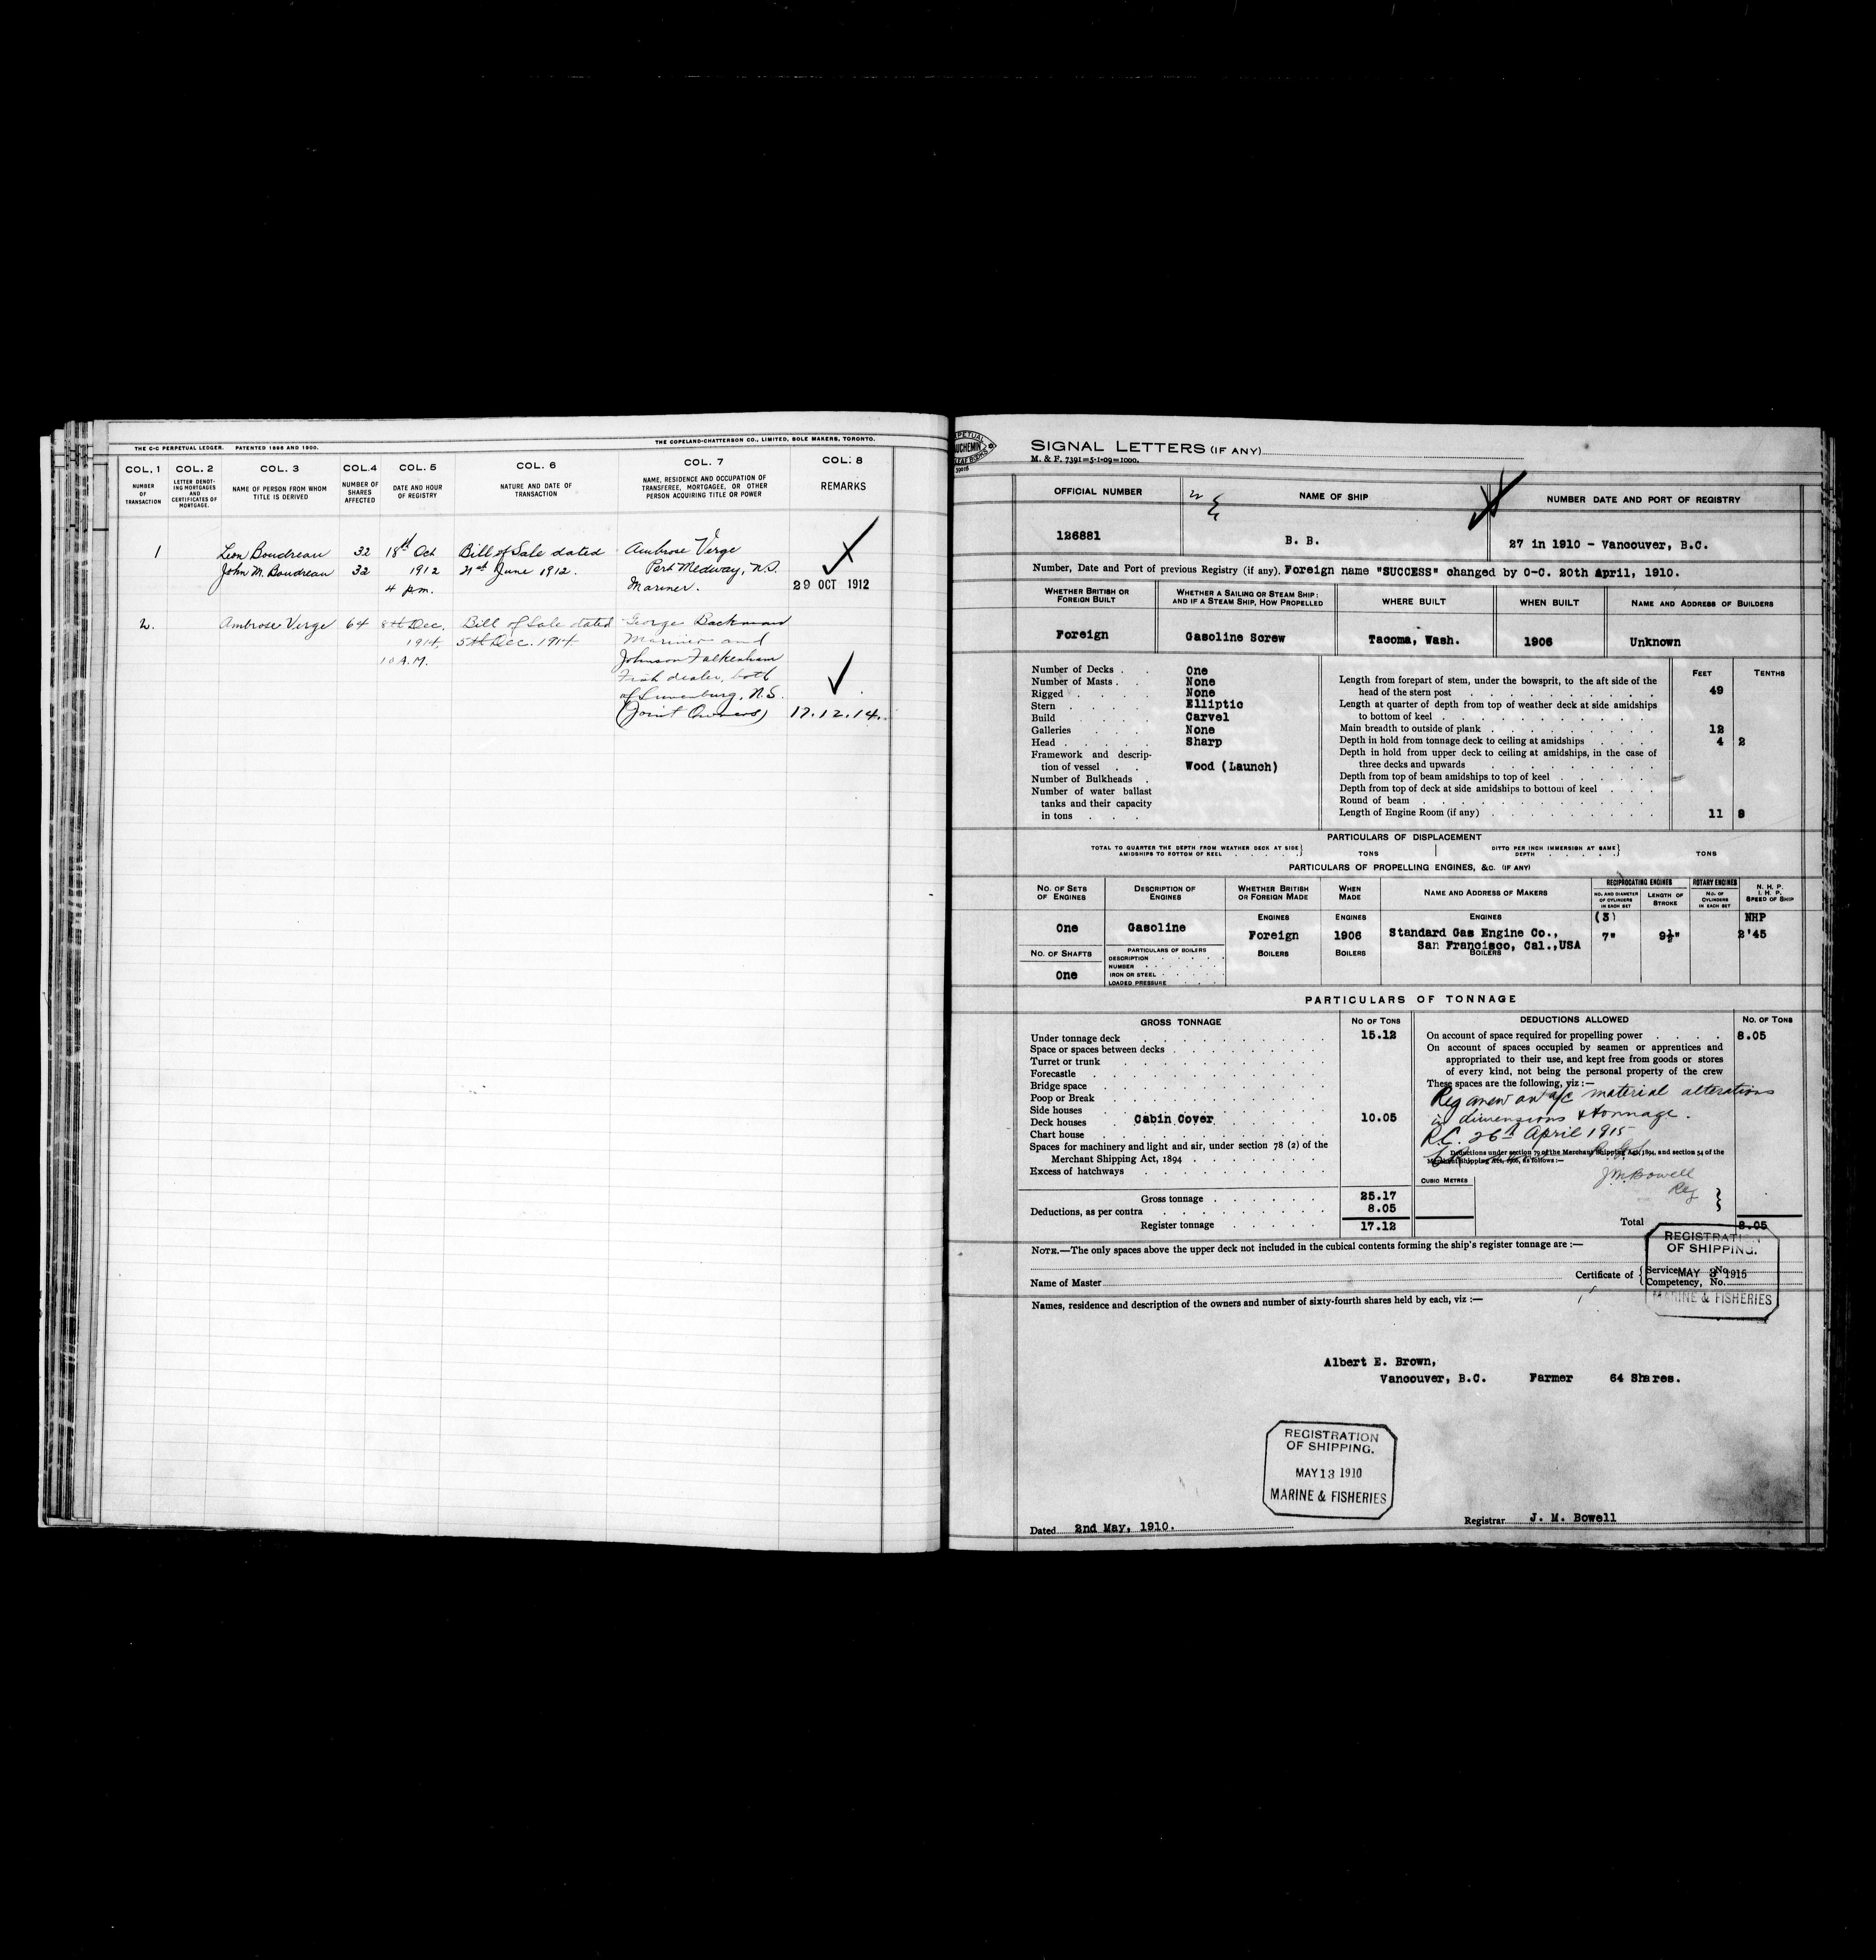 THE C-C PERPETUAL LEDGER. PATENTED 1895 AND 1900. THE COPELAND-CHATTERSON CO., LIMITED, SOLE MAKERS, TORONTO.
COL. 1 COL. 2 COL. 3 COL. 4 COL. 5 COL. 6 COL. 7 COL. 8
NUMBER OF TRANSACTION LETTER DENOTING MORTGAGES AND CERTIFICATES OF MORTGAGE. NAME OF PERSON FROM WHOM TITLE IS DERIVED NUMBER OF SHARES AFFECTED DATE AND HOUR OF REGISTRY NATURE AND DATE OF TRANSACTION NAME, RESIDENCE AND OCCUPATION OF TRANSFEREE, MORTGAGEE, OR OTHER PERSON ACQUIRING TITLE OR POWER REMARKS
1 Leon Boudreau 32 18th Oct Bill of Sale dated Ambrose Verge
John M. Boudreau 32 1912 21st June 1912. Port Medway, N.S.
4 p.m. Mariner. 29 OCT 1912
2. Ambrose Verge 64 8th Dec. Bill of Sale dated George Backman
1914, 5th Dec. 1914 Mariner and
10 A.M. Johnson Falkenham
Fish dealer, both
of Lunenburg, N.S.
(Joint Owners) 17.12.14.
SIGNAL LETTERS (IF ANY)
M. & F. 7391=5-1-09=1000.
OFFICIAL NUMBER NAME OF SHIP NUMBER DATE AND PORT OF REGISTRY
126881 B. B. 27 in 1910 - Vancouver, B.C.
Number, Date and Port of previous Registry (if any). Foreign name "SUCCESS" changed by O-C. 20th April, 1910.
WHETHER BRITISH OR FOREIGN BUILT WHETHER A SAILING OR STEAM SHIP; AND IF A STEAM SHIP, HOW PROPELLED WHERE BUILT WHEN BUILT NAME AND ADDRESS OF BUILDERS
Foreign Gasoline Screw Tacoma, Wash. 1906 Unknown
FEET TENTHS
Number of Decks One
Number of Masts None
Rigged None
Stern Elliptic
Build Carvel
Galleries None
Head Sharp
Framework and description of vessel Wood (Launch)
Number of Bulkheads
Number of water ballast tanks and their capacity in tons
Length from forepart of stem, under the bowsprit, to the aft side of the head of the stern post 49
Length at quarter of depth from top of weather deck at side amidships to bottom of keel
Main breadth to outside of plank 12
Depth in hold from tonnage deck to ceiling at amidships 4 2
Depth in hold from upper deck to ceiling at amidships, in the case of three decks and upwards
Depth from top of beam amidships to top of keel
Depth from top of deck at side amidships to bottom of keel
Round of beam
Length of Engine Room (if any) 11 8
PARTICULARS OF DISPLACEMENT
TOTAL TO QUARTER THE DEPTH FROM WEATHER DECK AT SIDE AMIDSHIPS TO BOTTOM OF KEEL TONS DITTO PER INCH IMMERSION AT SAME DEPTH TONS
PARTICULARS OF PROPELLING ENGINES, &C. (IF ANY)
NO. OF SETS OF ENGINES DESCRIPTION OF ENGINES WHETHER BRITISH OR FOREIGN MADE WHEN MADE NAME AND ADDRESS OF MAKERS RECIPROCATING ENGINES ROTARY ENGINES N. H. P. I. H. P. SPEED OF SHIP
NO. AND DIAMETER OF CYLINDERS IN EACH SET LENGTH OF STROKE NO. OF CYLINDERS IN EACH SET
ENGINES ENGINES ENGINES (3) NHP
One Gasoline Foreign 1906 Standard Gas Engine Co., San Francisco, Cal., USA 7" 9½" 2'45
NO. OF SHAFTS PARTICULARS OF BOILERS BOILERS BOILERS BOILERS
One DESCRIPTION
NUMBER
IRON OR STEEL
LOADED PRESSURE
PARTICULARS OF TONNAGE
GROSS TONNAGE NO OF TONS DEDUCTIONS ALLOWED NO. OF TONS
Under tonnage deck 15.12
Space or spaces between decks
Turret or trunk
Forecastle
Bridge space
Poop or Break
Side houses
Deck houses Cabin Cover 10.05
Chart house
Spaces for machinery and light and air, under section 78 (2) of the Merchant Shipping Act, 1894
Excess of hatchways
Gross tonnage 25.17
Deductions, as per contra 8.05
Register tonnage 17.12
On account of space required for propelling power 8.05
On account of spaces occupied by seamen or apprentices and
appropriated to their use, and kept free from goods or stores
of every kind, not being the personal property of the crew
These spaces are the following, viz :—
Reg anew on a/c material alterations
in dimensions & tonnage.
R.C. 26th April 1915
Deductions under section 79 of the Merchant Shipping Act, 1894, and section 54 of the
Merchant Shipping Act, 1906, as follows :—
J.M. Bowell
Reg
CUBIC METRES
Total 8.05
NOTE.—The only spaces above the upper deck not included in the cubical contents forming the ship's register tonnage are :—
REGISTRATION
OF SHIPPING.
MAY 3 1915
MARINE & FISHERIES
Name of Master Certificate of Service No.
Competency, No.
Names, residence and description of the owners and number of sixty-fourth shares held by each, viz :—
Albert E. Brown,
Vancouver, B.C. Farmer 64 Shares.
REGISTRATION
OF SHIPPING.
MAY 13 1910
MARINE & FISHERIES
Dated 2nd May, 1910. Registrar J. M. Bowell